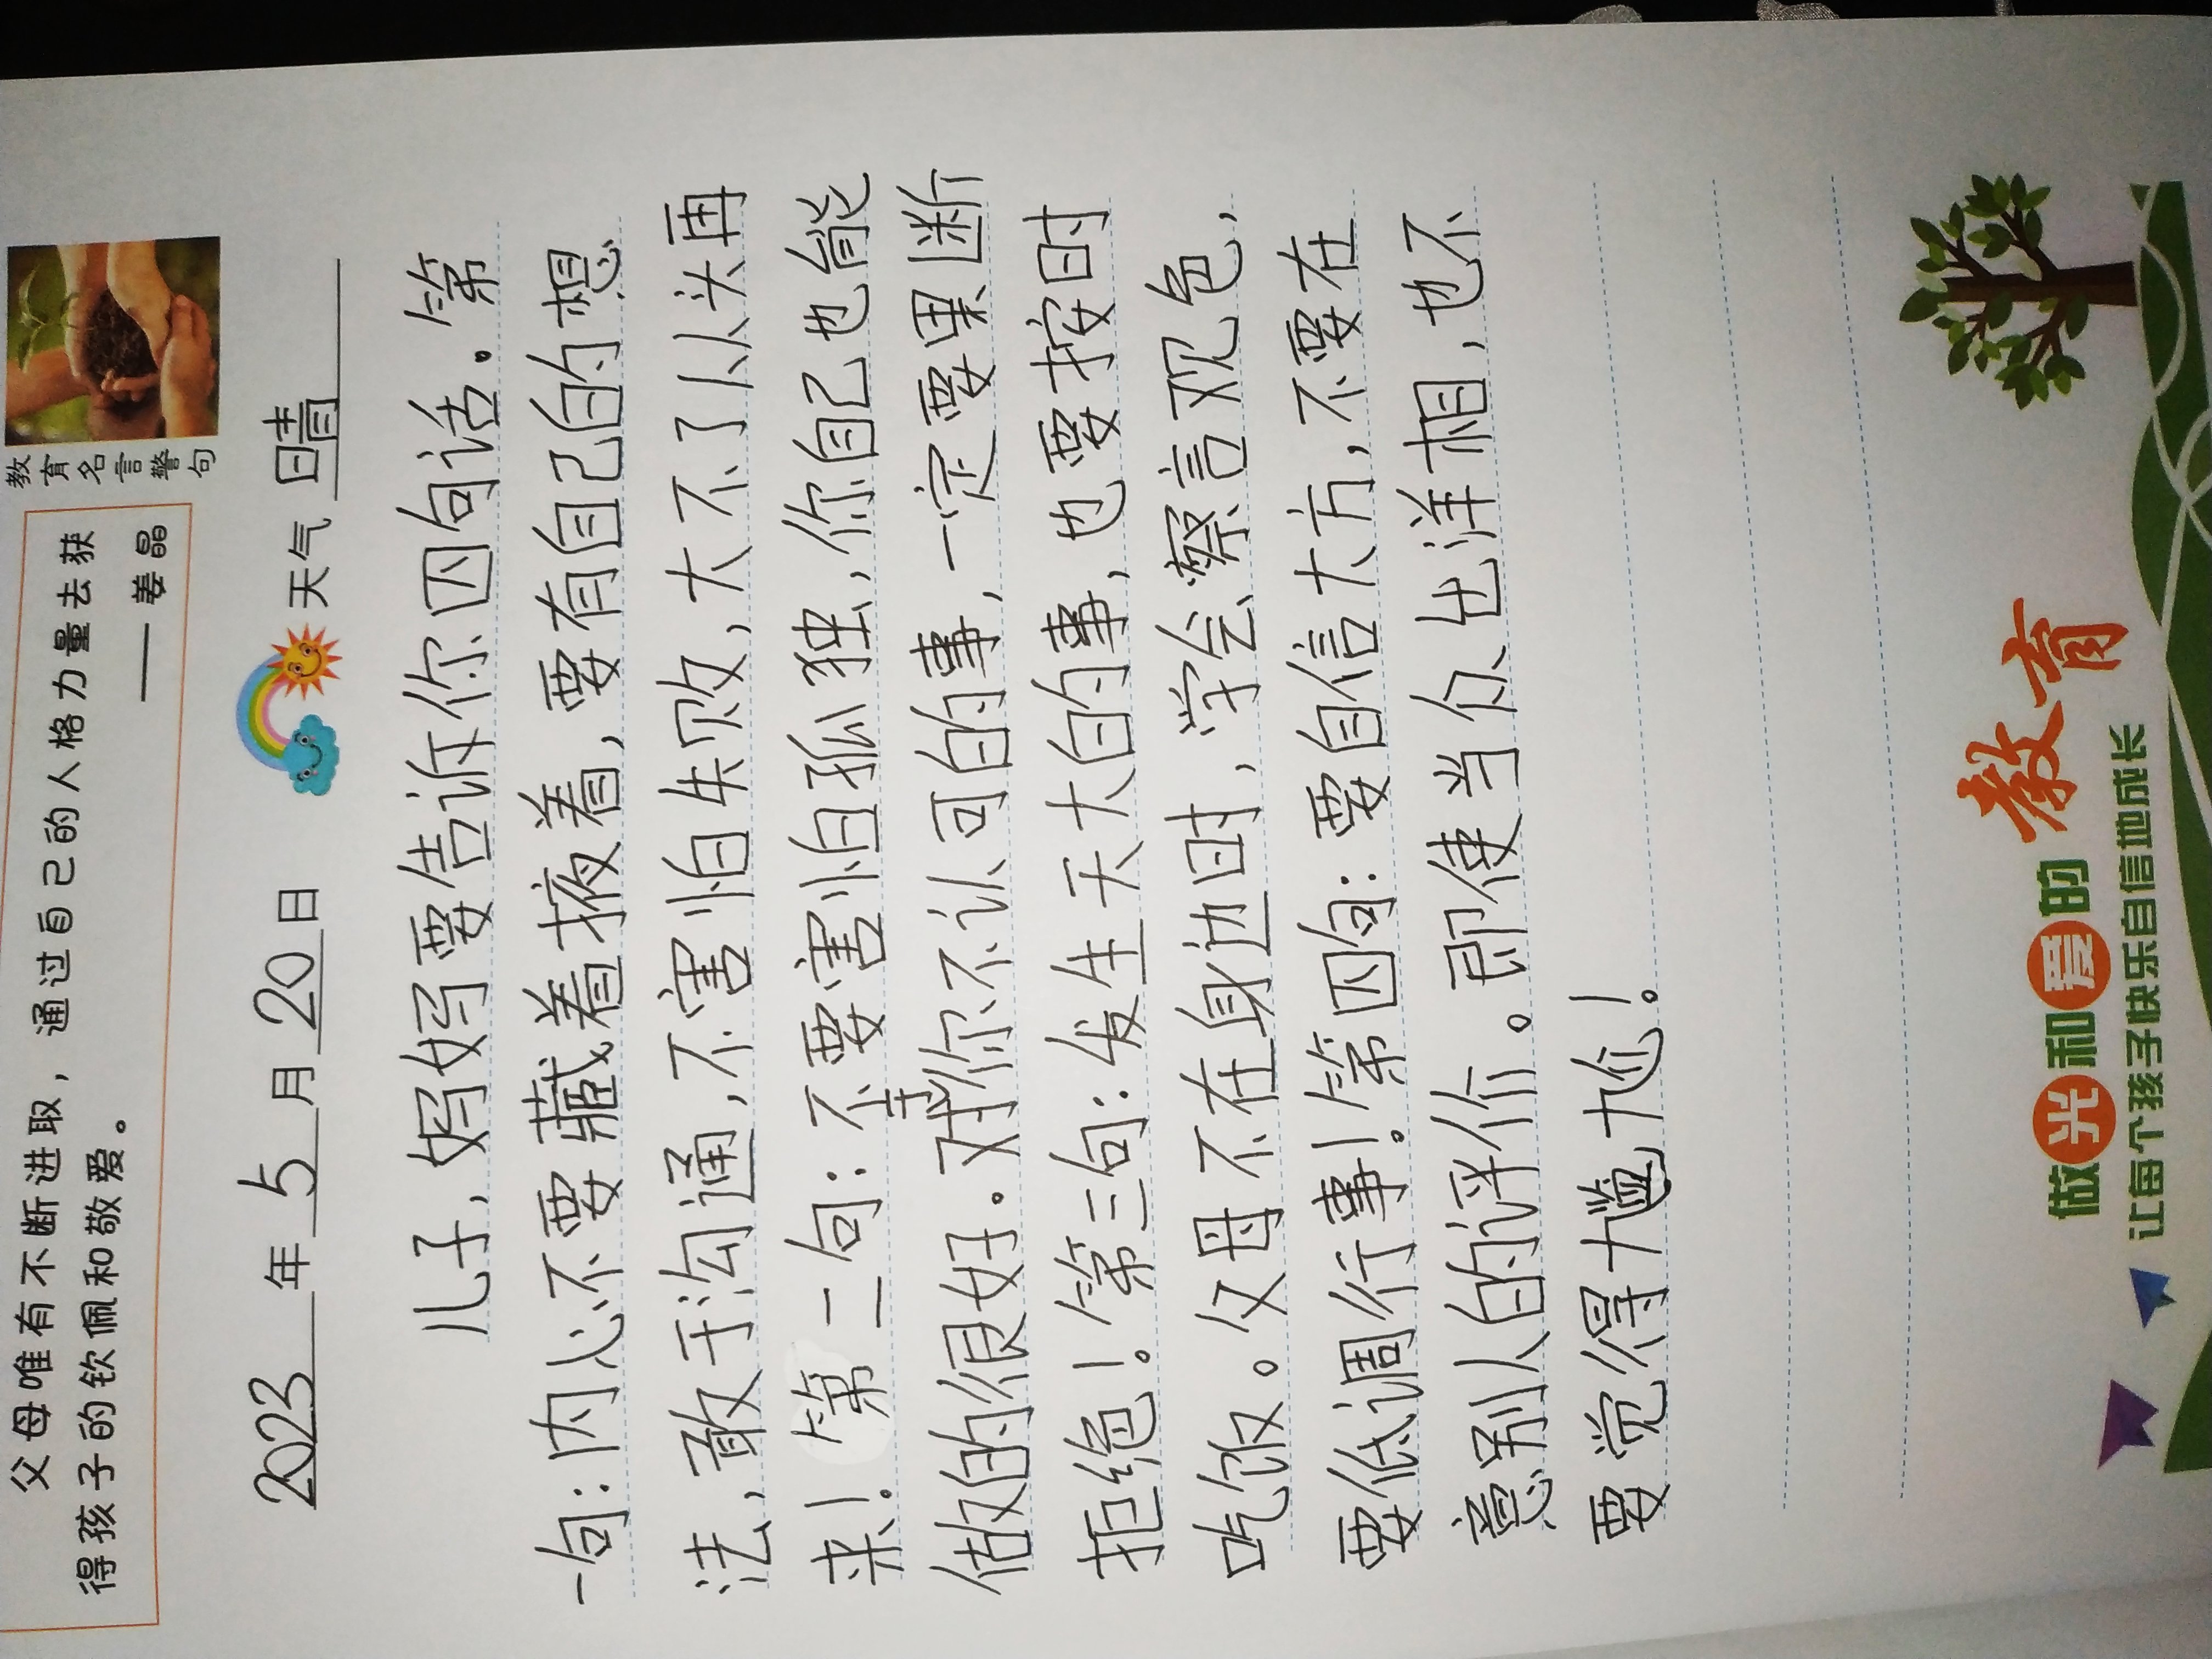 父母唯有不断进取，通过自己的人格力量去获
得孩子的钦佩和敬爱。
——姜晶
教育名言警句
2023年5月20日 天气 晴
儿子，妈妈要告诉你四句话。第
一句：内心不要藏着掖着，要有自己的想
法，敢于沟通，不害怕失败，大不了从头再
来！第二句：不要害怕孤独，你自己也能
做的很好。对于你不认可的事，一定要果断
拒绝！第三句：发生天大的事，也要按时
吃饭。父母不在身边时，学会察言观色，
要低调行事！第四句：要自信大方，不要在
意别人的评价。即使当众出洋相，也不
要觉得尴尬！
做光和爱的教育
让每个孩子快乐自信地成长